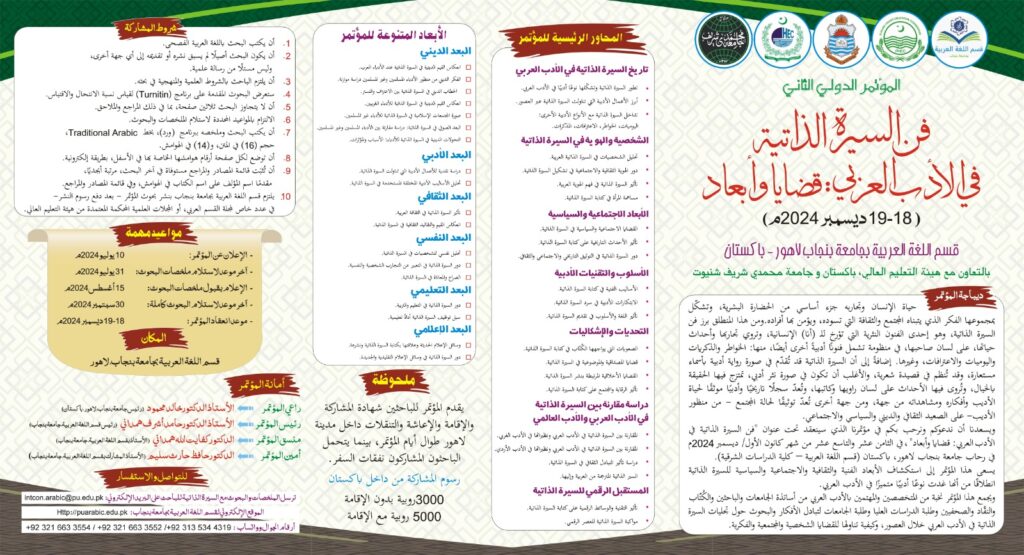 قسم اللغة العربية
المؤتمر الدولي الثاني
فن السيرة الذاتية
في الأدب العربي: قضايا وأبعاد
(18-19 ديسمبر 2024م)
قسم اللغة العربية بجامعة بنجاب لاهور - باكستان
بالتعاون مع هيئة التعليم العالي، باكستان و جامعة محمدي شريف شنيوت
ديباجة المؤتمر
حياة الإنسان وتجاربه جزء أساسي من الحضارة البشرية، وتشكّل
بمجموعها الفكر الذي يتبناه المجتمع والثقافة التي تسوده، ويؤمن بها أفراده. ومن هذا المنطلق برز فن
السيرة الذاتية، وهو إحدى الفنون النثرية التي تؤرخ للـ (أنا) الإنسانية، وتروي تجاربها وأحداث
حياتها، على لسان صاحبها، في منظومة تشمل فنونًا أدبية أخرى أيضًا، منها: الخواطر والذكريات
واليوميات والاعترافات، وغيرها. إضافة إلى أن السيرة الذاتية قد تُقدّم في صورة رواية أدبية بأسماء
مستعارة، وقد تُنظم في قصيدة شعرية، والأغلب أن تكون في صورة نثر أدبي، تمتزج فيها الحقيقة
بالخيال، وتُروى فيها الأحداث على لسان راويها وكاتبها، وتُعدّ سجلّا تاريخيًّا وأدبيًّا موثقًا لحياة
الأديب وأفكاره ومشاهداته من جهة، ومن جهة أخرى تُعدّ توثيقًا لحالة المجتمع - من منظور
الأديب- على الصعيد الثقافي والديني والسياسي والاجتماعي.
ويسعدنا أن ندعوكم ونرحب بكم في مؤتمرنا الذي سينعقد تحت عنوان "فن السيرة الذاتية في
الأدب العربي: قضايا وأبعاد"، في الثامن عشر والتاسع عشر من شهر كانون الأول/ ديسمبر 2024م
في رحاب جامعة بنجاب لاهور، باكستان (قسم اللغة العربية – كلية الدراسات الشرقية).
يسعى هذا المؤتمر إلى استكشاف الأبعاد الفنية والثقافية والاجتماعية والسياسية للسيرة الذاتية
انطلاقًا من أنها غدت نوعًا أدبيًّا متميزًا في الأدب العربي.
ويجمع هذا المؤتمر نخبة من المتخصصين والمهتمين بالأدب العربي من أساتذة الجامعات والباحثين والكُتّاب
والنقّاد والصحفيين وطلبة الدراسات العليا وطلبة الجامعات لتبادل الأفكار والبحوث حول تجليات السيرة
الذاتية في الأدب العربي خلال العصور، وكيفية تناولها للقضايا الشخصية والمجتمعية والفكرية.
المحاور الرئيسية للمؤتمر
تاريخ السيرة الذاتية في الأدب العربي
تطور السيرة الذاتية وتشكّلها نوعًا أدبيًّا في الأدب العربي.
أبرز الأعمال الأدبية التي تناولت السيرة الذاتية عبر العصور.
الشخصية والهوية في السيرة الذاتية
تحليل الشخصيات في السيرة الذاتية العربية.
دور الهوية الثقافية والاجتماعية في تشكيل السيرة الذاتية.
تأثير السيرة الذاتية في فهم الهوية العربية.
مساهمة المرأة في كتابة السيرة الذاتية.
الأبعاد الاجتماعية والسياسية
القضايا الاجتماعية والسياسية في السيرة الذاتية.
تأثير الأحداث التاريخية على كتابة السيرة الذاتية.
دور السيرة الذاتية في التوثيق التاريخي والاجتماعي والثقافي.
الأسلوب والتقنيات الأدبية
الأساليب الفنية في كتابة السيرة الذاتية.
الابتكارات الأدبية في سرد السيرة الذاتية.
تأثير اللغة والأسلوب في تقديم السيرة الذاتية.
التحديات والإشكاليات
الصعوبات التي يواجهها الكُتّاب في كتابة السيرة الذاتية.
قضايا المصداقية والموضوعية في السيرة الذاتية.
القضايا الأخلاقية المرتبطة بنشر السيرة الذاتية.
تأثير الرقابة والمجتمع على كتابة السيرة الذاتية.
دراسة مقارنة بين السيرة الذاتية
في الأدب العربي والأدب العالمي
مقارنة بين السيرة الذاتية في الأدب العربي ونظيراتها في الأدب الغربي.
تأثير التبادل الثقافي في السيرة الذاتية.
السيرة الذاتية المترجمة من العربية وإليها.
المستقبل الرقمي للسيرة الذاتية
تأثير التقنية والوسائط الرقمية على كتابة السيرة الذاتية.
مواكبة السيرة الذاتية للعصر الرقمي.
الأبعاد المتنوعة للمؤتمر
البعد الديني
انعكاس القيم الدينية في السيرة الذاتية عند الأدباء العرب.
البعد الأدبي
دراسة نقدية للأعمال الأدبية التي تناولت السيرة الذاتية.
تحليل الأساليب الأدبية المختلفة المستخدمة في السيرة الذاتية.
البعد الثقافي
تأثير السيرة الذاتية في الثقافة العربية.
انعكاس القيم والتقاليد الثقافية في السيرة الذاتية.
البعد النفسي
تحليل نفسي للشخصيات في السيرة الذاتية.
دور السيرة الذاتية في التعبير عن التجارب الشخصية والنفسية.
الصراع والمعاناة في السيرة الذاتية.
البعد التعليمي
دور السيرة الذاتية في التعليم والتربية.
سبل توظيف السيرة الذاتية أداة تعليمية.
البعد الإعلامي
تأثير السيرة الذاتية في وسائل الإعلام التقليدية والجديدة.
ملحوظة
يقدم المؤتمر للباحثين شهادة المشاركة
والإقامة والإعاشة والتنقلات داخل مدينة
لاهور طوال أيام المؤتمر، بينما يتحمل
الباحثون المشاركون نفقات السفر.
رسوم المشاركة من داخل باكستان
3000 روبية بدون الإقامة
5000 روبية مع الإقامة
شروط المشاركة
1. أن يكتب البحث باللغة العربية الفصحى.
2. أن يكون البحث أصيلًا لم يسبق نشره أو تقديمه إلى أي جهة أخرى،
وليس مستلًّا من رسالة علمية.
3. أن يلتزم الباحث بالشروط العلمية والمنهجية في بحثه.
4. ستعرض البحوث المقدمة على برنامج (Turnitin) لقياس نسبة الانتحال والاقتباس.
5. أن لا يتجاوز البحث ثلاثين صفحة، بما في ذلك المراجع والملاحق.
6. الالتزام بالمواعيد المحددة لاستلام الملخصات والبحوث.
7. أن يكتب البحث وملخصه ببرنامج (ورد)، بخط Traditional Arabic،
حجم (16) في المتن، و(14) في الهوامش.
8. أن توضع لكل صفحة أرقام هوامشها الخاصة بها في الأسفل، بطريقة إلكترونية.
9. أن تُثبّت قائمة المصادر والمراجع مستوفاة في آخر البحث، مرتبة أبجديًّا،
مقدمًا اسم المؤلف على اسم الكتاب في الهوامش، وفي قائمة المصادر والمراجع.
10. يلتزم قسم اللغة العربية بجامعة بنجاب بنشر بحوث المؤتمر - بعد دفع رسوم النشر-
في عدد خاص لمجلة القسم العربي، أو المجلات العلمية المحكمة المعتمدة من هيئة التعليم العالي.
مواعيد مهمة
- الإعلان عن المؤتمر: 10 يوليو 2024م
- آخر موعد لاستلام ملخصات البحوث: 31 يوليو 2024م
- الإعلام بقبول ملخصات البحوث: 15 أغسطس 2024م
- آخر موعد لاستلام البحوث كاملة: 30 سبتمبر 2024م
- موعد انعقاد المؤتمر: 18-19 ديسمبر 2024م
المكان
قسم اللغة العربية بجامعة بنجاب، لاهور
أمانة المؤتمر
راعي المؤتمر الأستاذ الدكتور خالد محمود (رئيس جامعة بنجاب لاهور باكستان)
رئيس المؤتمر الأستاذ الدكتور حامد أشرف همداني
منسق المؤتمر الدكتور كفايت الله همداني
أمين المؤتمر الدكتور حافظ حارث سليم
للتواصل والاستفسار
ترسل الملخصات والبحوث مع السيرة الذاتية للباحث على البريد الإلكتروني: intcon.arabic@pu.edu.pk
الموقع الإلكتروني لقسم اللغة العربية بجامعة بنجاب: Http://puarabic.edu.pk
أرقام الجوال وواتساب: +92 321 663 3554 / +92 321 663 3552 / +92 313 534 4319